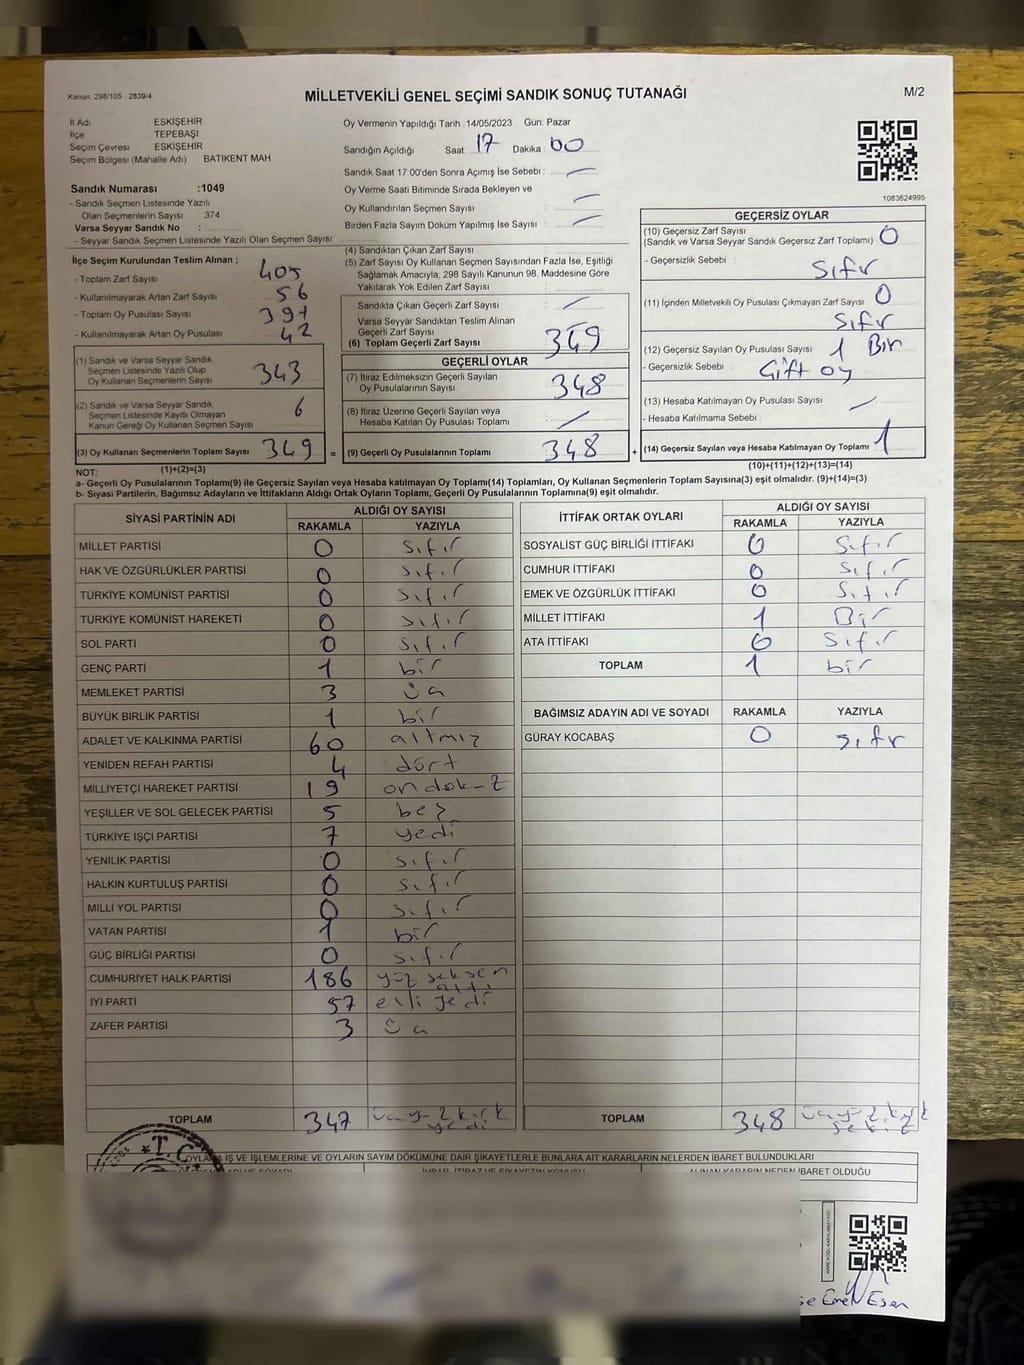 Kanun. 298/105 . 2839/4
MİLLETVEKİLİ GENEL SEÇİMİ SANDIK SONUÇ TUTANAĞI
M/2
İl Adı : ESKİŞEHİR
İlçe : TEPEBAŞI
Seçim Çevresi : ESKİŞEHİR
Seçim Bölgesi (Mahalle Adı) : BATIKENT MAH
Sandık Numarası :1049
- Sandık Seçmen Listesinde Yazılı
Olan Seçmenlerin Sayısı : 374
Varsa Seyyar Sandık No :
- Seyyar Sandık Seçmen Listesinde Yazılı Olan Seçmen Sayısı:
Oy Vermenin Yapıldığı Tarih :14/05/2023 Gün: Pazar
Sandığın Açıldığı Saat 17 Dakika: 00
Sandık Saat 17:00'den Sonra Açımış İse Sebebi : —
Oy Verme Saati Bitiminde Sırada Bekleyen ve
Oy Kullandırılan Seçmen Sayısı —
Birden Fazla Sayım Döküm Yapılmış İse Sayısı : —
1083624995
İlçe Seçim Kurulundan Teslim Alınan ;
- Toplam Zarf Sayısı 405
- Kullanılmayarak Artan Zarf Sayısı 56
- Toplam Oy Pusulası Sayısı 391
- Kullanılmayarak Artan Oy Pusulası 42
(1) Sandık ve Varsa Seyyar Sandık
Seçmen Listesinde Yazılı Olup
Oy Kullanan Seçmenlerin Sayısı 343
(2) Sandık ve Varsa Seyyar Sandık
Seçmen Listesinde Kayıtlı Olmayan
Kanun Gereği Oy Kullanan Seçmen Sayısı 6
(3) Oy Kullanan Seçmenlerin Toplam Sayısı 349
(4) Sandıktan Çıkan Zarf Sayısı :
(5) Zarf Sayısı Oy Kullanan Seçmen Sayısından Fazla İse, Eşitliği
Sağlamak Amacıyla, 298 Sayılı Kanunun 98. Maddesine Göre
Yakılarak Yok Edilen Zarf Sayısı :
Sandıkta Çıkan Geçerli Zarf Sayısı : /
Varsa Seyyar Sandıktan Teslim Alınan
Geçerli Zarf Sayısı :
(6) Toplam Geçerli Zarf Sayısı 349
GEÇERLİ OYLAR
(7) İtiraz Edilmeksizin Geçerli Sayılan
Oy Pusulalarının Sayısı 348
(8) İtiraz Üzerine Geçerli Sayılan veya
Hesaba Katılan Oy Pusulası Toplamı /
= (9) Geçerli Oy Pusulasının Toplamı 348
GEÇERSİZ OYLAR
(10) Geçersiz Zarf Sayısı
(Sandık ve Varsa Seyyar Sandık Geçersiz Zarf Toplamı) 0
- Geçersizlik Sebebi : Sıfır
(11) İçinden Milletvekili Oy Pusulası Çıkmayan Zarf Sayısı : 0
Sıfır
(12) Geçersiz Sayılan Oy Pusulası Sayısı : 1 Bir
- Geçersizlik Sebebi : Çift oy
(13) Hesaba Katılmayan Oy Pusulası Sayısı : —
- Hesaba Katılmama Sebebi :
+ (14) Geçersiz Sayılan veya Hesaba Katılmayan Oy Toplamı 1
NOT: (1)+(2)=(3)
(10)+(11)+(12)+(13)=(14)
a- Geçerli Oy Pusulasının Toplamı(9) ile Geçersiz Sayılan veya Hesaba Katılmayan Oy Toplamı(14) Toplamları, Oy Kullanan Seçmenlerin Toplam Sayısına(3) eşit olmalıdır. (9)+(14)=(3)
b- Siyasi Partilerin, Bağımsız Adayların ve İttifakların Aldığı Ortak Oyların Toplamı, Geçerli Oy Pusulalarının Toplamına(9) eşit olmalıdır.
SİYASİ PARTİNİN ADI
ALDIĞI OY SAYISI
RAKAMLA YAZIYLA
MİLLET PARTİSİ 0 sıfır
HAK VE ÖZGÜRLÜKLER PARTİSİ 0 sıfır
TÜRKİYE KOMÜNİST PARTİSİ 0 sıfır
TÜRKİYE KOMÜNİST HAREKETİ 0 sıfır
SOL PARTİ 0 sıfır
GENÇ PARTİ 1 bir
MEMLEKET PARTİSİ 3 üç
BÜYÜK BİRLİK PARTİSİ 1 bir
ADALET VE KALKINMA PARTİSİ 60 altmış
YENİDEN REFAH PARTİSİ 4 dört
MİLLİYETÇİ HAREKET PARTİSİ 19 ondokuz
YEŞİLLER VE SOL GELECEK PARTİSİ 5 beş
TÜRKİYE İŞÇİ PARTİSİ 7 yedi
YENİLİK PARTİSİ 0 sıfır
HALKIN KURTULUŞ PARTİSİ 0 sıfır
MİLLİ YOL PARTİSİ 0 sıfır
VATAN PARTİSİ 1 bir
GÜÇ BİRLİĞİ PARTİSİ 0 sıfır
CUMHURİYET HALK PARTİSİ 186 yüz seksen altı
İYİ PARTİ 57 elli yedi
ZAFER PARTİSİ 3 üç
TOPLAM 347 üçyüz kırk yedi
İTTİFAK ORTAK OYLARI
ALDIĞI OY SAYISI
RAKAMLA YAZIYLA
SOSYALİST GÜÇ BİRLİĞİ İTTİFAKI 0 sıfır
CUMHUR İTTİFAKI 0 sıfır
EMEK VE ÖZGÜRLÜK İTTİFAKI 0 sıfır
MİLLET İTTİFAKI 1 Bir
ATA İTTİFAKI 0 sıfır
TOPLAM 1 bir
BAĞIMSIZ ADAYIN ADI VE SOYADI RAKAMLA YAZIYLA
GÜRAY KOCABAŞ 0 sıfır
TOPLAM 348 üçyüz kırk sekiz
T.C.
OYLAMA İŞ VE İŞLEMLERİNE VE OYLARIN SAYIM DÖKÜMÜNE DAİR ŞİKAYETLERLE BUNLARA AİT KARARLARIN NELERDEN İBARET BULUNDUKLARI
ALINAN KARARIN NEDEN İBARET OLDUĞU